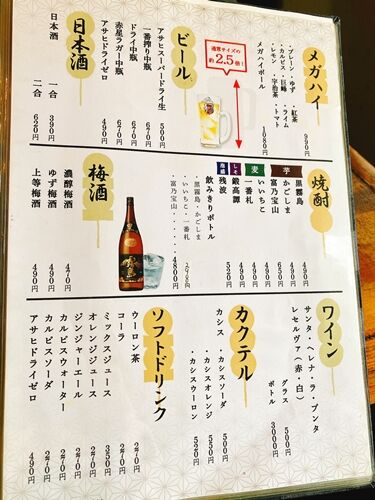 メガハイ
・プレーン・ゆず・紅茶
・カルピス・巨峰・ライム
・レモン・宇治茶・トマト
990円
メガハイボール
1080円
通常サイズの
約2.5倍！
ビール
アサヒスーパードライ生
500円
一番搾り中瓶
670円
ドライ中瓶
670円
赤星ラガー中瓶
670円
アサヒドライゼロ
490円
日本酒
日本酒
一合
320円
二合
620円
焼酎
芋
黒霧島
490円
かごしま
450円
富乃宝山
650円
麦
いいちこ
490円
一番札
490円
しそ
鍛高譚
490円
残波
520円
飲みきりボトル
・黒霧島・かごしま
・いいちこ・一番札
・富乃宝山
4800円
梅酒
濃醇梅酒
470円
ゆず梅酒
490円
上等梅酒
490円
ワイン
サンタ・ヘレナ・ラ・プンタ
レセルヴァ（赤・白）
グラス
500円
ボトル
3000円
カクテル
カシス
・カシスソーダ
500円
・カシスオレンジ
550円
・カシスウーロン
520円
ソフトドリンク
ウーロン茶
270円
コーラ
270円
ミックスジュース
350円
オレンジジュース
270円
ジンジャーエール
270円
カルピスウォーター
270円
カルピスソーダ
270円
アサヒドライゼロ
490円